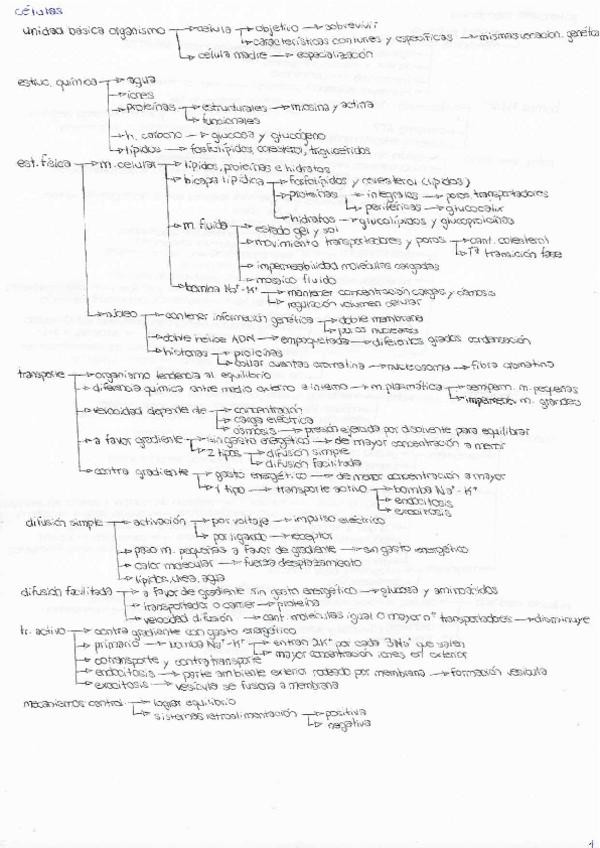 células
unidad básica organismo → célula → objetivo → sobrevivir
→ características comunes y específicas → misma información genética
→ célula madre → especialización
estruc. química → agua
→ iones
→ proteínas → estructurales → miosina y actina
→ funcionales
→ h. carbono → glucosa y glucógeno
→ lípidos → fosfolípidos, colesterol, triglicéridos
est. física → m. celular → lípidos, proteínas e hidratos
→ bicapa lipídica → fosfolípidos y colesterol (lípidos)
→ proteínas → integrales → poros, transportadores
→ periféricas → glucocalix
→ hidratos → glucolípidos y glucoproteínas
→ m. fluida → estado gel y sol
→ movimiento transportadores y poros → cant. colesterol
→ Tª transición fase
→ impermeabilidad moléculas cargadas
→ mosaico fluido
→ bomba Na⁺-K⁺ → mantener concentración cargas y osmosis
→ regulación volumen celular
→ núcleo → contener información genética → doble membrana
→ poros nucleares
→ doble hélice ADN → empaquetada → diferentes grados condensación
→ histonas → proteínas
→ collar cuentas cromatina → nucleosoma → fibra cromatina
transporte → organismo tendencia al equilibrio
→ diferencia química entre medio externo e interno → m. plasmática → semiperm. m. pequeñas
→ imperm. m. grandes
→ velocidad depende de → concentración
→ carga eléctrica
→ osmosis → presión ejercida por disolvente para equilibrar
→ a favor gradiente → sin gasto energético → de mayor concentración a menor
→ 2 tipos → difusión simple
→ difusión facilitada
→ contra gradiente → gasto energético → de menor concentración a mayor
→ 1 tipo → transporte activo → bomba Na⁺-K⁺
→ endocitosis
→ exocitosis
difusión simple → activación → por voltaje → impulso eléctrico
→ por ligando → receptor
→ paso m. pequeñas a favor de gradiente → sin gasto energético
→ calor molecular → fuerza desplazamiento
→ lípidos, urea, agua
difusión facilitada → a favor de gradiente sin gasto energético → glucosa y aminoácidos
→ transportador o carrier → proteína
→ velocidad difusión → cant. moléculas igual o mayor nº transportadores → disminuye
tr. activo → contra gradiente con gasto energético
→ primario → bomba Na⁺-K⁺ → entran 2K⁺ por cada 3Na⁺ que salen
→ mayor concentración iones en exterior
→ cotransporte y contratransporte
→ endocitosis → parte ambiente exterior rodeado por membrana → formación vesícula
→ exocitosis → vesícula se fusiona a membrana
mecanismos control → lograr equilibrio
→ sistemas retroalimentación → positiva
→ negativa
1